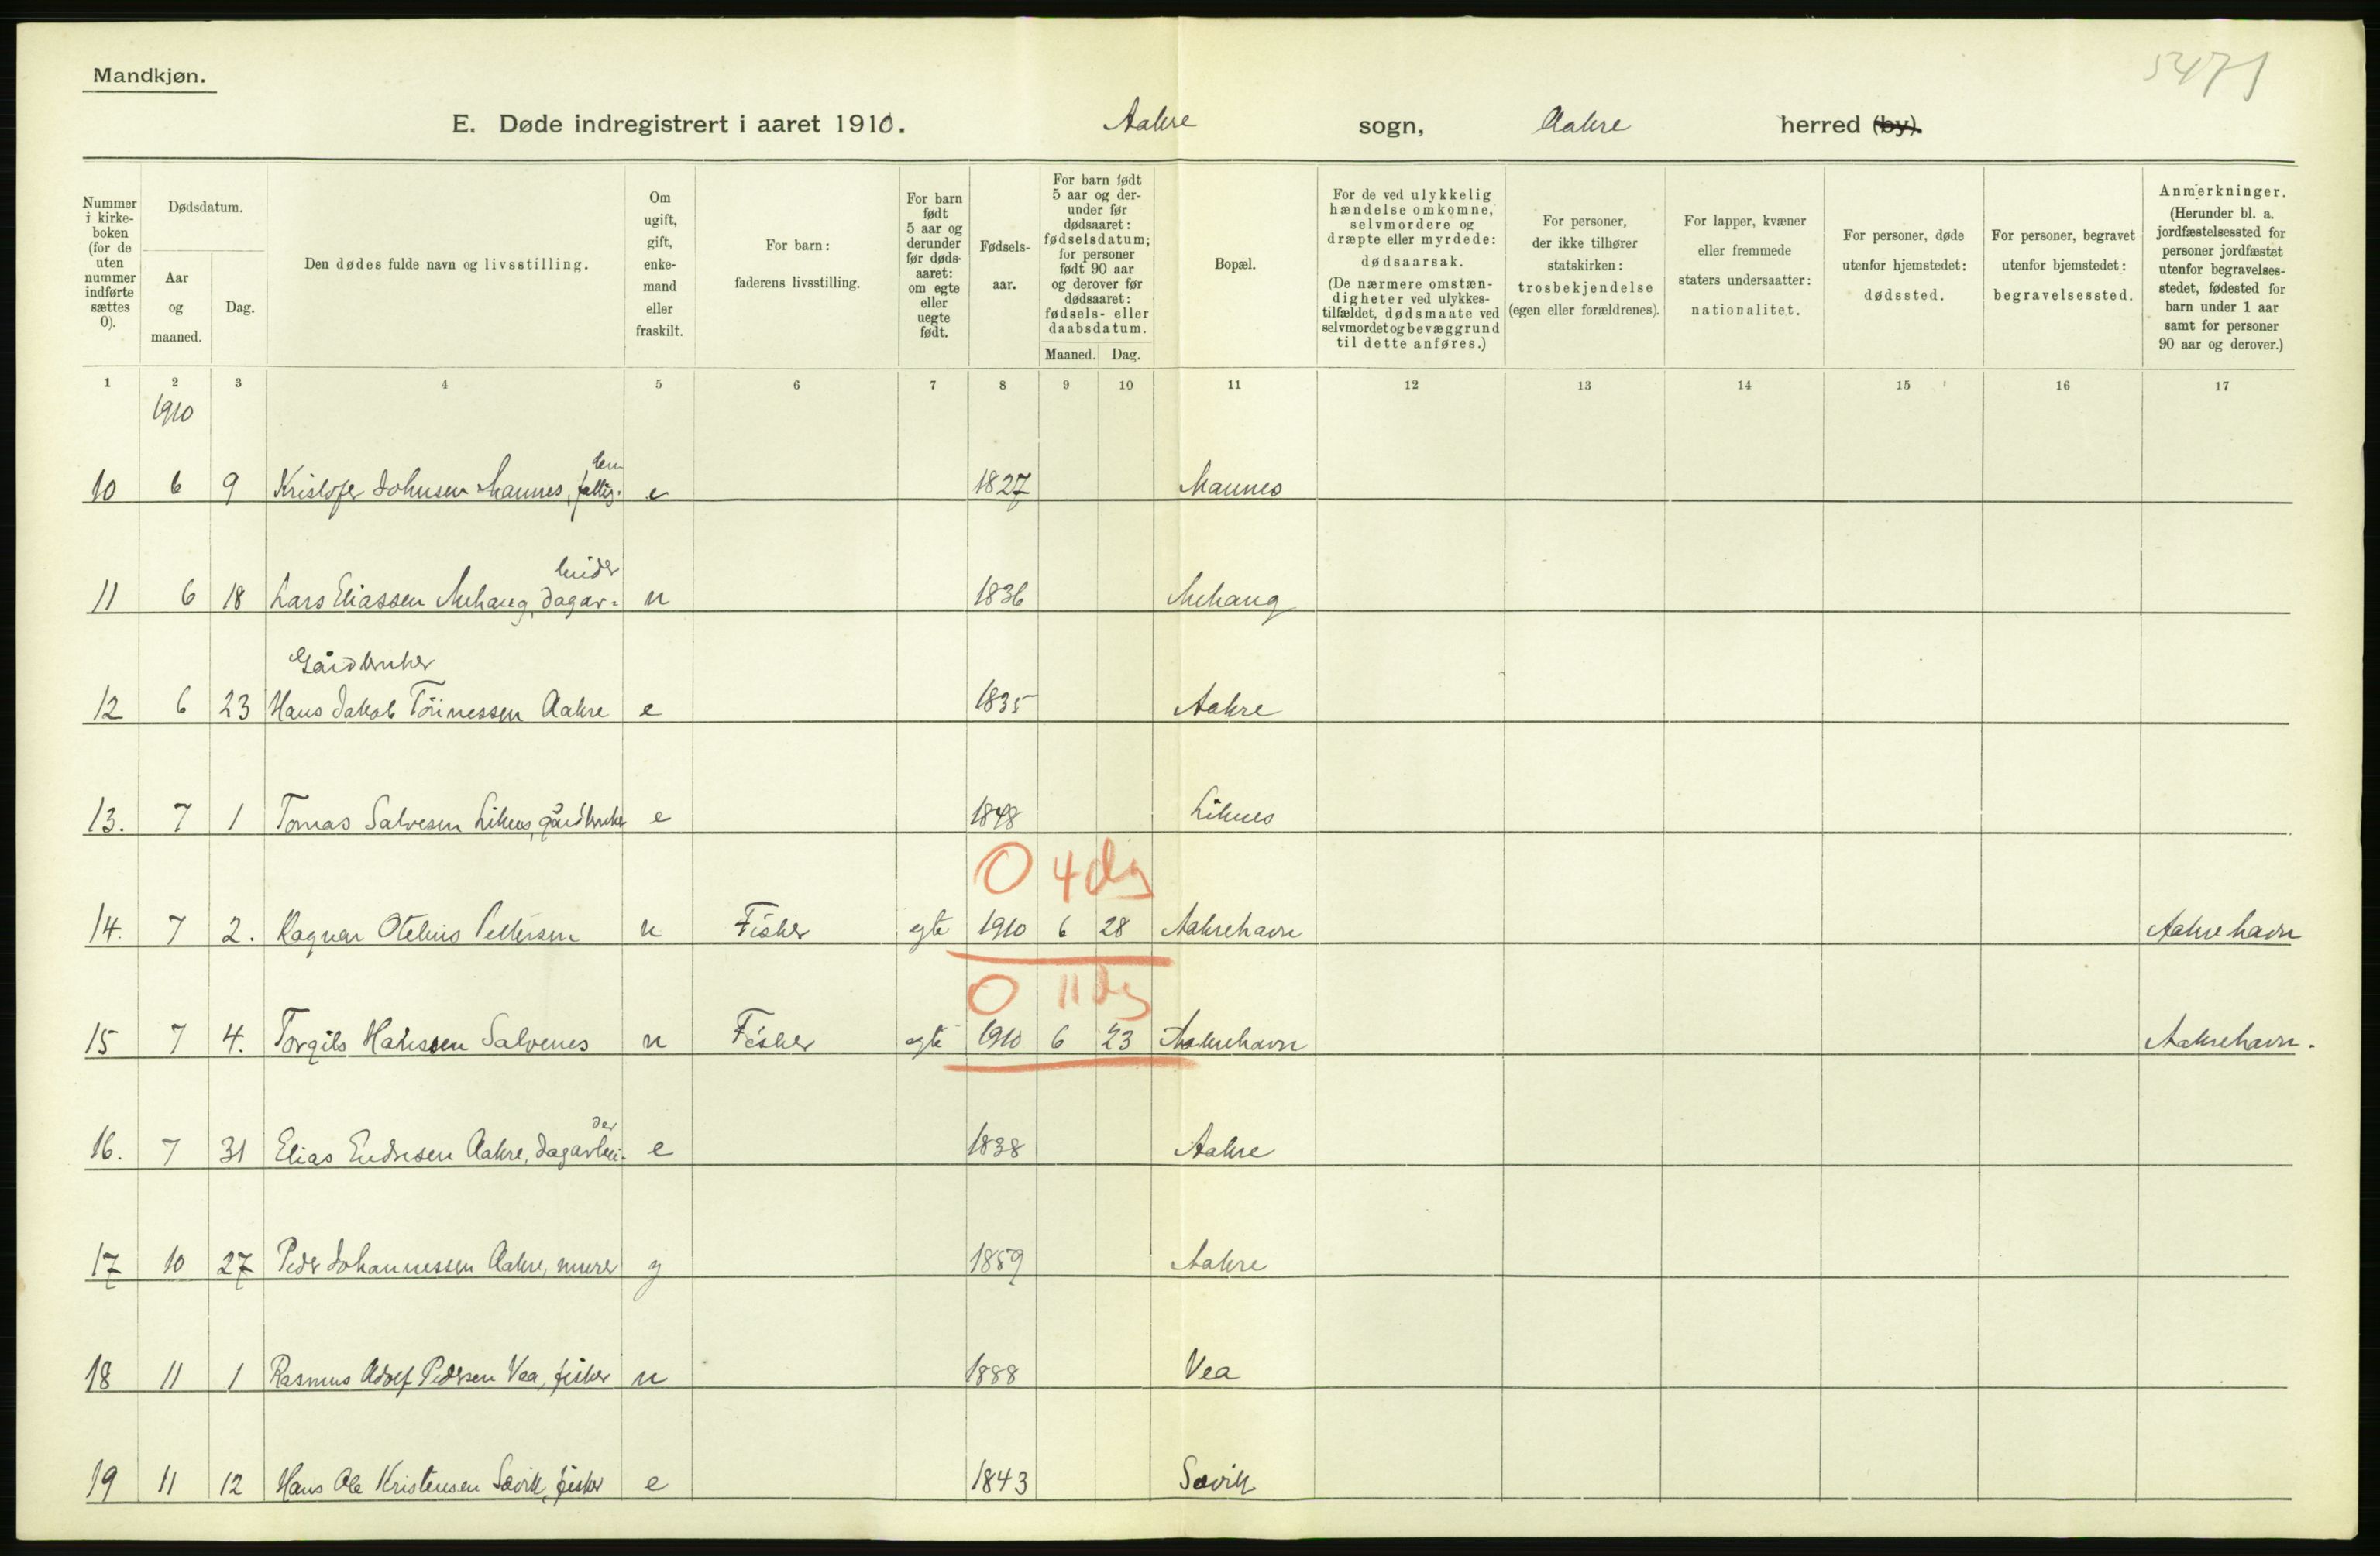 Mandkjøn.
5471
E. Døde indregistrert i aaret 1910. Aakre sogn, Aakre herred (by).
Nummer i kirke-boken (for de uten nummer indførte sættes 0).
Dødsdatum.
Aar og maaned.
Dag.
Den dødes fulde navn og livsstilling.
Om ugift, gift, enke-mand eller fraskilt.
For barn: faderens livsstilling.
For barn født 5 aar og derunder før døds-aaret: om egte eller uegte født.
Fødsels-aar.
For barn født 5 aar og der-under før dødsaaret: fødselsdatum; for personer født 90 aar og derover før dødsaaret: fødsels- eller daabsdatum.
Maaned. Dag.
Bopæl.
For de ved ulykkelig hændelse omkomne, selvmordere og dræpte eller myrdede: dødsaarsak. (De nærmere omstæn-digheter ved ulykkes-tilfældet, dødsmaate ved selvmordet og bevæggrund til dette anføres.)
For personer, der ikke tilhører statskirken: trosbekjendelse (egen eller forældrenes).
For lapper, kvæner eller fremmede staters undersaatter: nationalitet.
For personer, døde utenfor hjemstedet: dødssted.
For personer, begravet utenfor hjemstedet: begravelsessted.
Anmerkninger. (Herunder bl. a. jordfæstelsessted for personer jordfæstet utenfor begravelses-stedet, fødested for barn under 1 aar samt for personer 90 aar og derover.)
1 2 3 4 5 6 7 8 9 10 11 12 13 14 15 16 17
1910
lem
10 6 9 Kristofer Johnsen Mannes, fattig- e 1827 Mannes
beider
11 6 18 Lars Eliassen Mehaug, dagar- u 1836 Mehaug
Gårdbruker
12 6 23 Hans Jakob Tönnessen Aakre e 1835 Aakre
13. 7 1 Tomas Salvesen Liknes, gårdbruker e 1848 Liknes
0 4 dg
14. 7 2. Ragnar Otelius Pettersen u Fisker egte 1910 6 28 Aakrehavn Aakrehavn
0 11 dg
15 7 4. Torgils Hansen Salvenes u Fisker egte 1910 6 23 Aakrehavn Aakrehavn.
der
16. 7 31 Elias Endresen Aakre, dagarbei- e 1838 Aakre
17 10 27 Peder Johannessen Aakre, murer g 1859 Aakre
18 11 1 Rasmus Adolf Pedersen Vea, fisker u 1888 Vea
19 11 12 Hans Ole Kristensen Sævik, fisker e 1843 Sævik